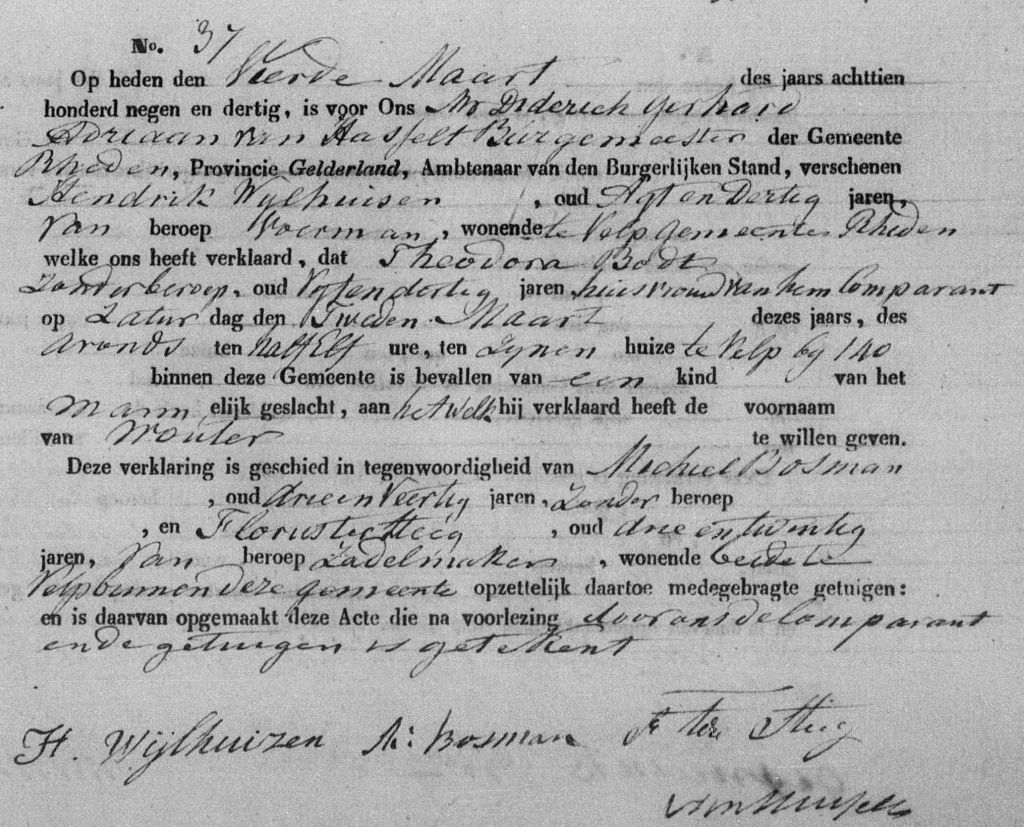 No. 37
Op heden den Vierde Maart des jaars achttien
honderd negen en dertig, is voor Ons Mr Diderich Gerhard
Adriaan van Hasselt Burgemeester der Gemeente
Rheden, Provincie Gelderland, Ambtenaar van den Burgerlijken Stand, verschenen
Hendrik Wylhuisen, oud Agt en Dertig jaren,
Van beroep Voerman, wonende te Velp gemeente Rheden
welke ons heeft verklaard, dat Theodora Bodt
Zonder beroep, oud Vyf en dertig jaren, huisvrouw van hem Comparant
op Zatur dag den Tweden Maart dezes jaars, des
avonds ten half Elf ure, ten Zynen huize te Velp by 140
binnen deze Gemeente is bevallen van een kind van het
Mann elijk geslacht, aan het welk hij verklaard heeft de voornaam
van Wouter te willen geven.
Deze verklaring is geschied in tegenwoordigheid van Michiel Bosman
, oud drie en Veertig jaren, Zonder beroep
, en Florus ter Steeg, oud drie en twintig
jaren, Van beroep Zadelmaker, wonende beide te
Velp binnen deze gemeente opzettelijk daartoe medegebragte getuigen:
en is daarvan opgemaakt deze Acte die na voorlezing door ons de Comparant
en de getuigen is getekent
H. Wijlhuizen M: Bosman F ter Steeg
van Hasselt